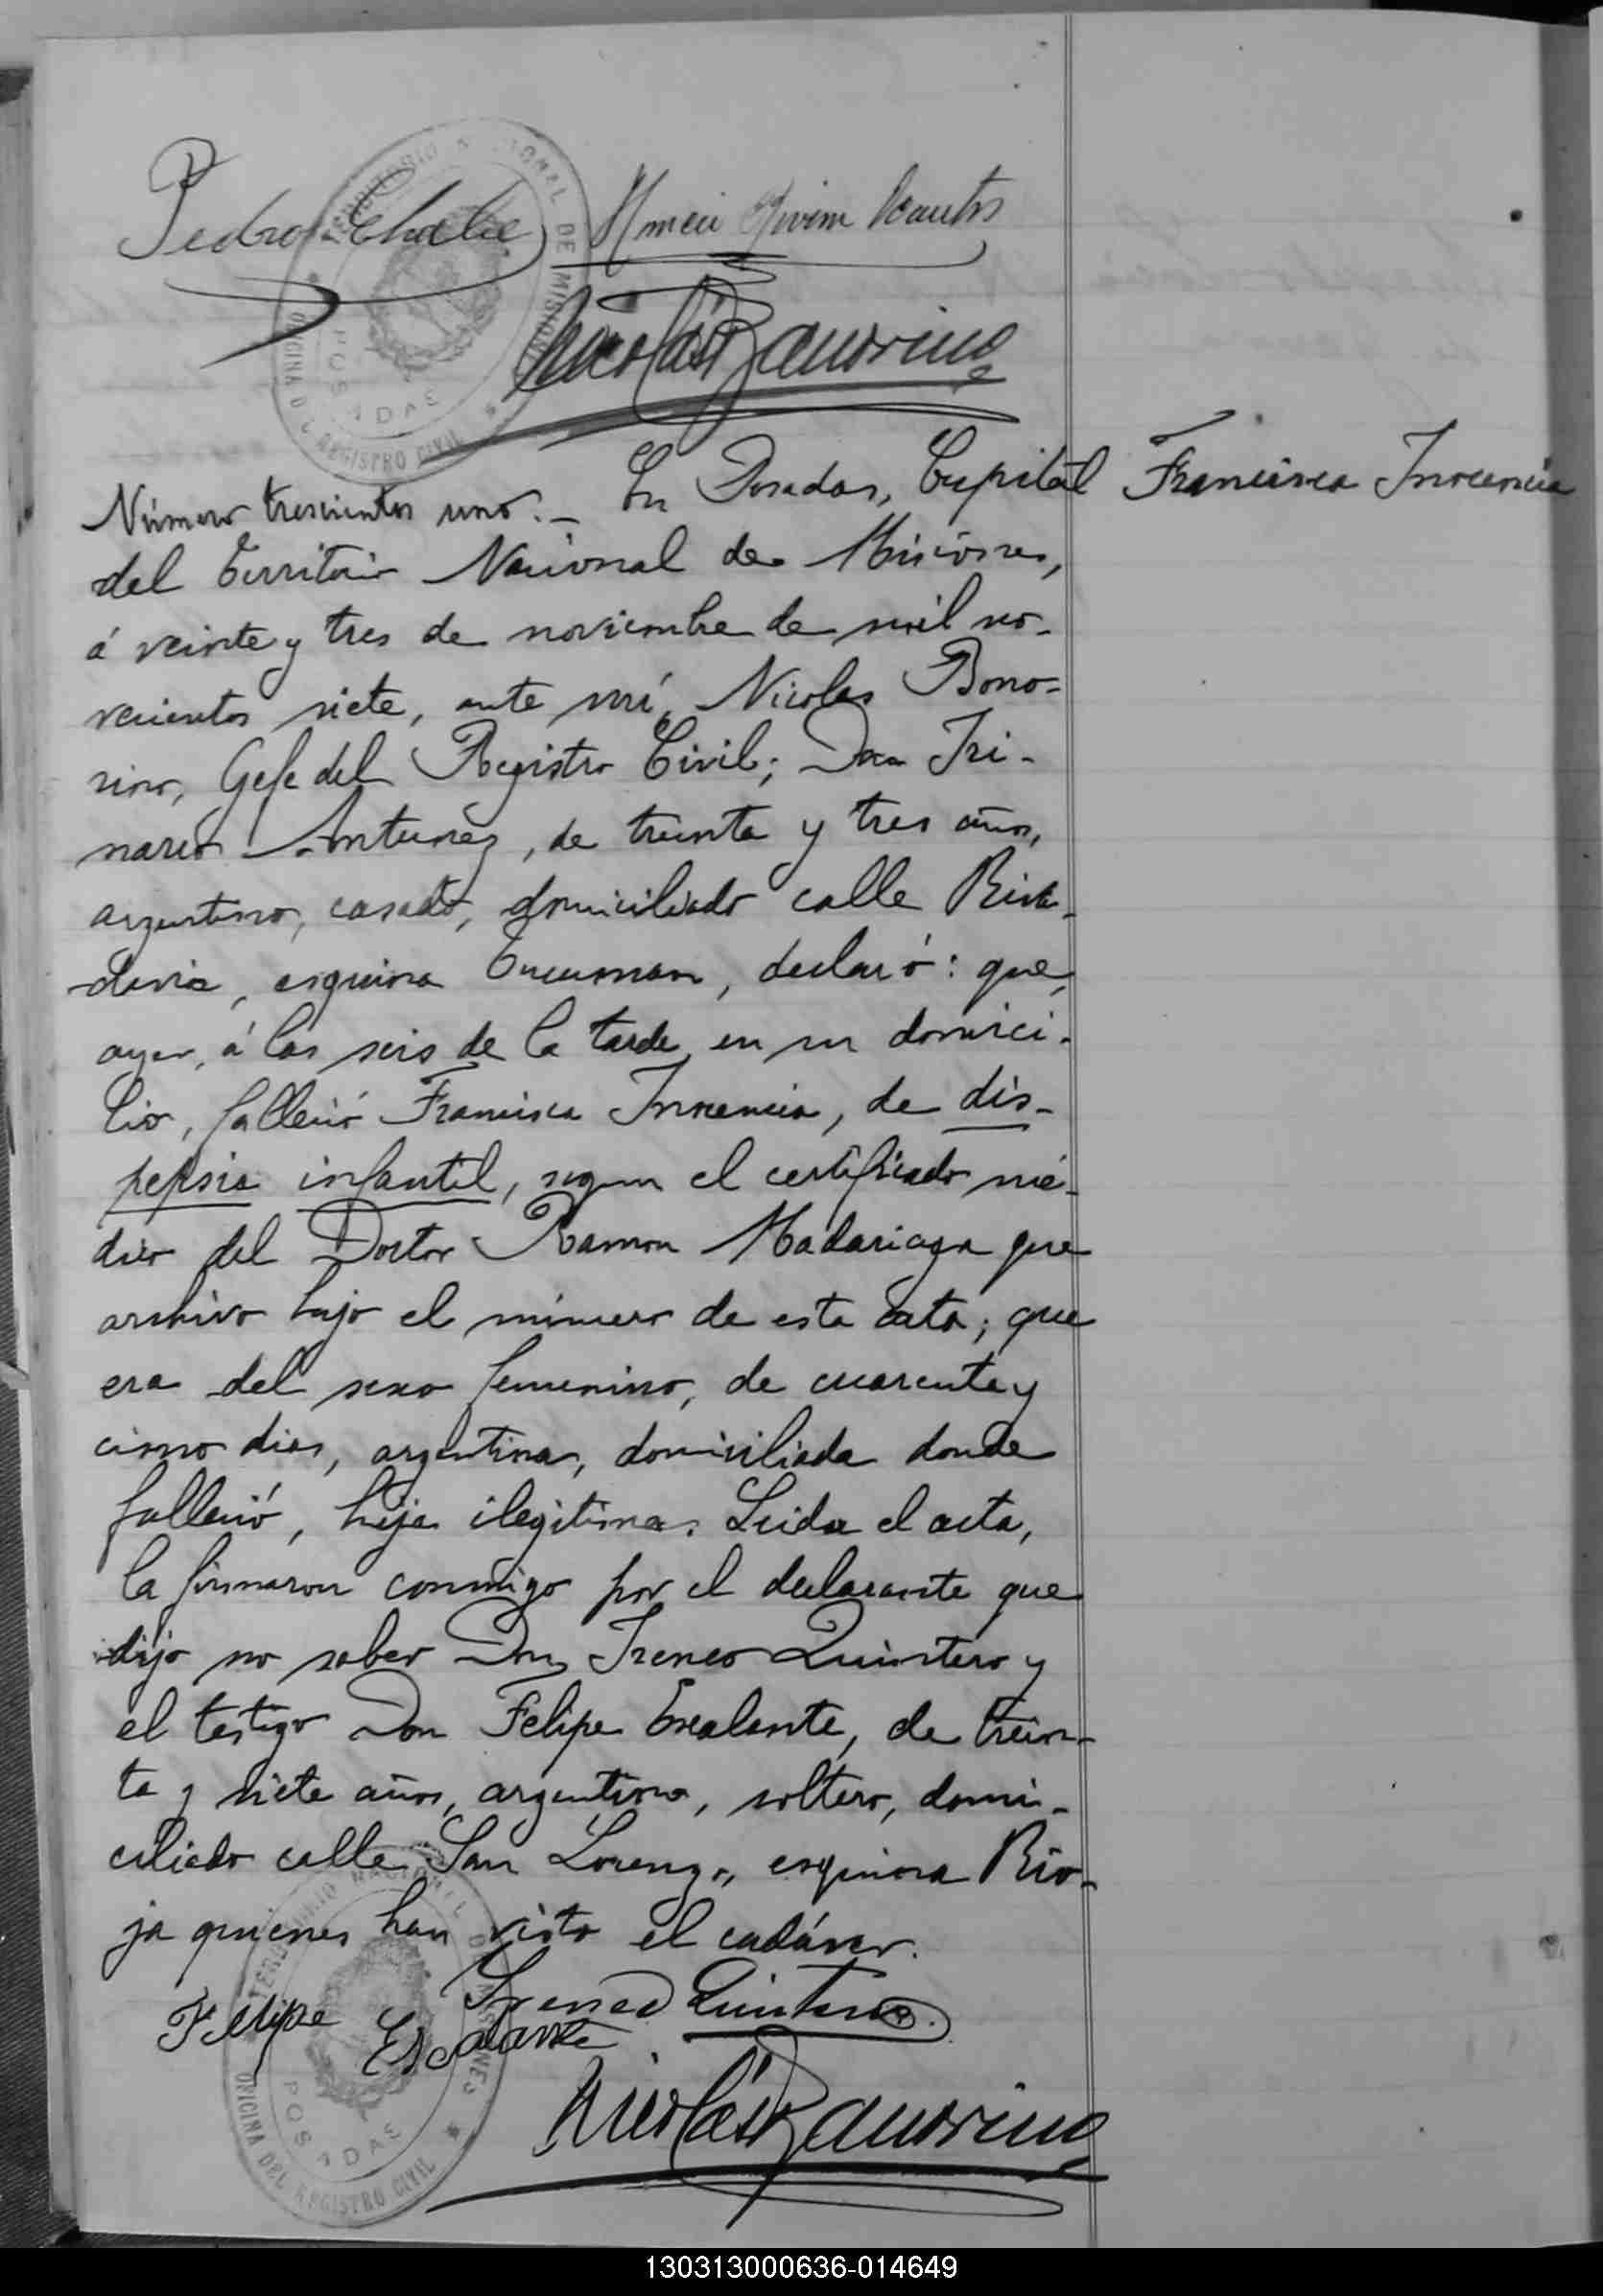 Pedro
Número trescientos uno.- En Posadas, Capital
Francisca Inocencia
del Territorio Nacional de Misiones,
á veinte y tres de noviembre de mil no-
vecientos siete, ante mí, Nicolas Bono-
rino, Gefe del Registro Civil; Don Tri-
nareo Antunez, de treinta y tres años,
argentino, casado, domiciliado calle Riva-
davia, esquina Tucuman, declaró: que,
ayer, á las seis de la tarde en su domici-
lio, falleció Francisca Inocencia, de dis-
pepsia infantil, segun el certificado mé-
dico del Doctor Ramon Madariaga que
archivo bajo el número de esta acta; que
era del sexo femenino, de cuarenta y
cinco dias, argentina, domiciliada donde
falleció, hija ilegitima. Leida el acta,
la firmaron conmigo por el declarante que
dijo no saber Don Ireneo Quintero y
el testigo Don Felipe Escalante, de trein-
ta y siete años, argentino, soltero, domi-
ciliado calle San Lorenzo, esquina Rio-
ja quienes han visto el cadáver.
Ireneo Quintero
Felipe Escalante
Nicolás Bonorino
TERRITORIO NACIONAL DE MISIONES
OFICINA DEL REGISTRO CIVIL
POSADAS
130313000636-014649